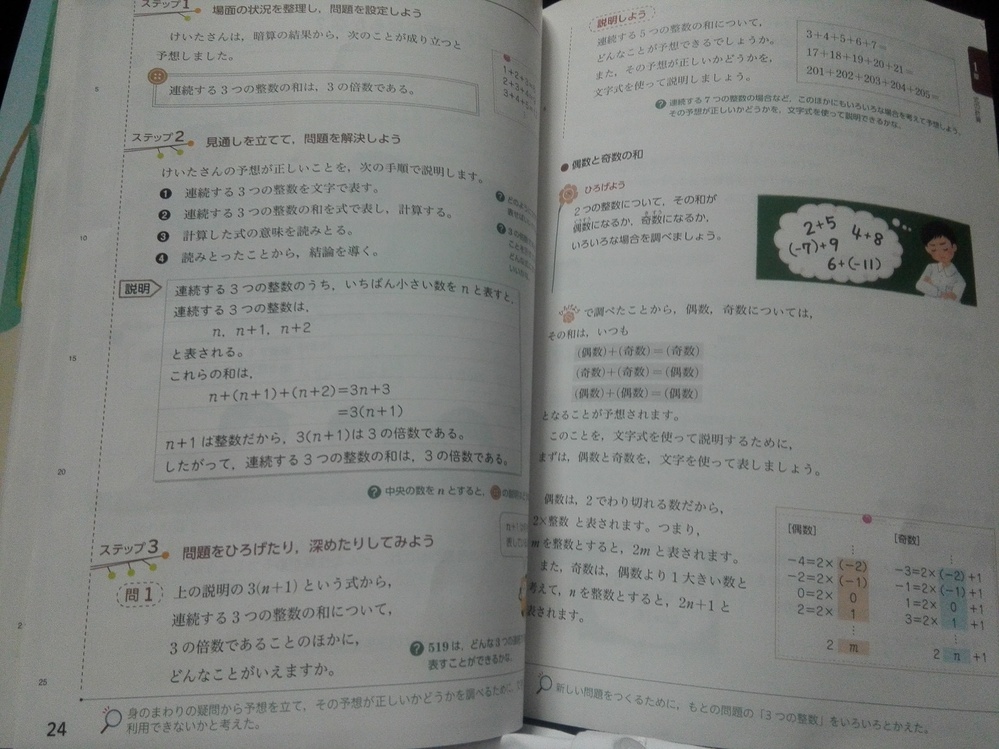 ステップ1 場面の状況を整理し，問題を設定しよう
けいたさんは，暗算の結果から，次のことが成り立つと
予想しました。
連続する3つの整数の和は，3の倍数である。
1+2+3
2+3+4
3+4+5
5
ステップ2 見通しを立てて，問題を解決しよう
けいたさんの予想が正しいことを，次の手順で説明します。
❶ 連続する3つの整数を文字で表す。
❷ 連続する3つの整数の和を式で表し，計算する。
❸ 計算した式の意味を読みとる。
❹ 読みとったことから，結論を導く。
10
説明
連続する3つの整数のうち，いちばん小さい数をnと表すと，
連続する3つの整数は，
n，n+1，n+2
と表される。
これらの和は，
n+(n+1)+(n+2)=3n+3
=3(n+1)
n+1は整数だから，3(n+1)は3の倍数である。
したがって，連続する3つの整数の和は，3の倍数である。
15
20
? 中央の数をnとすると，
ステップ3 問題をひろげたり，深めたりしてみよう
問1 上の説明の3(n+1)という式から，
連続する3つの整数の和について，
3の倍数であることのほかに，
どんなことがいえますか。
? 519は，どんな3つの
表すことができるかな。
2
25
24
身のまわりの疑問から予想を立て，その予想が正しいかどうかを調べるために，
利用できないかと考えた。
説明しよう
連続する5つの整数の和について，
どんなことが予想できるでしょうか。
また，その予想が正しいかどうかを，
文字式を使って説明しましょう。
3+4+5+6+7=
17+18+19+20+21=
201+202+203+204+205=
1章
? 連続する7つの整数の場合など，このほかにもいろいろな場合を考えて予想しよう。
その予想が正しいかどうかを，文字式を使って説明できるかな。
● 偶数と奇数の和
ひろげよう
2つの整数について，その和が
偶数になるか，奇数になるか，
いろいろな場合を調べましょう。
2+5 4+8
(-7)+9
6+(-11)
で調べたことから，偶数，奇数については，
その和は，いつも
(偶数)+(奇数)=(奇数)
(奇数)+(奇数)=(偶数)
(偶数)+(偶数)=(偶数)
となることが予想されます。
このことを，文字式を使って説明するために，
まずは，偶数と奇数を，文字を使って表しましょう。
偶数は，2でわり切れる数だから，
2×整数 と表されます。つまり，
mを整数とすると，2mと表されます。
また，奇数は，偶数より1大きい数と
考えて，nを整数とすると，2n+1と
表されます。
[偶数]
⋮
-4=2×(-2)
-2=2×(-1)
0=2× 0
2=2× 1
⋮
2 m
[奇数]
⋮
-3=2×(-2)+1
-1=2×(-1)+1
1=2× 0 +1
3=2× 1 +1
⋮
2 n +1
新しい問題をつくるために，もとの問題の「3つの整数」をいろいろとかえた。